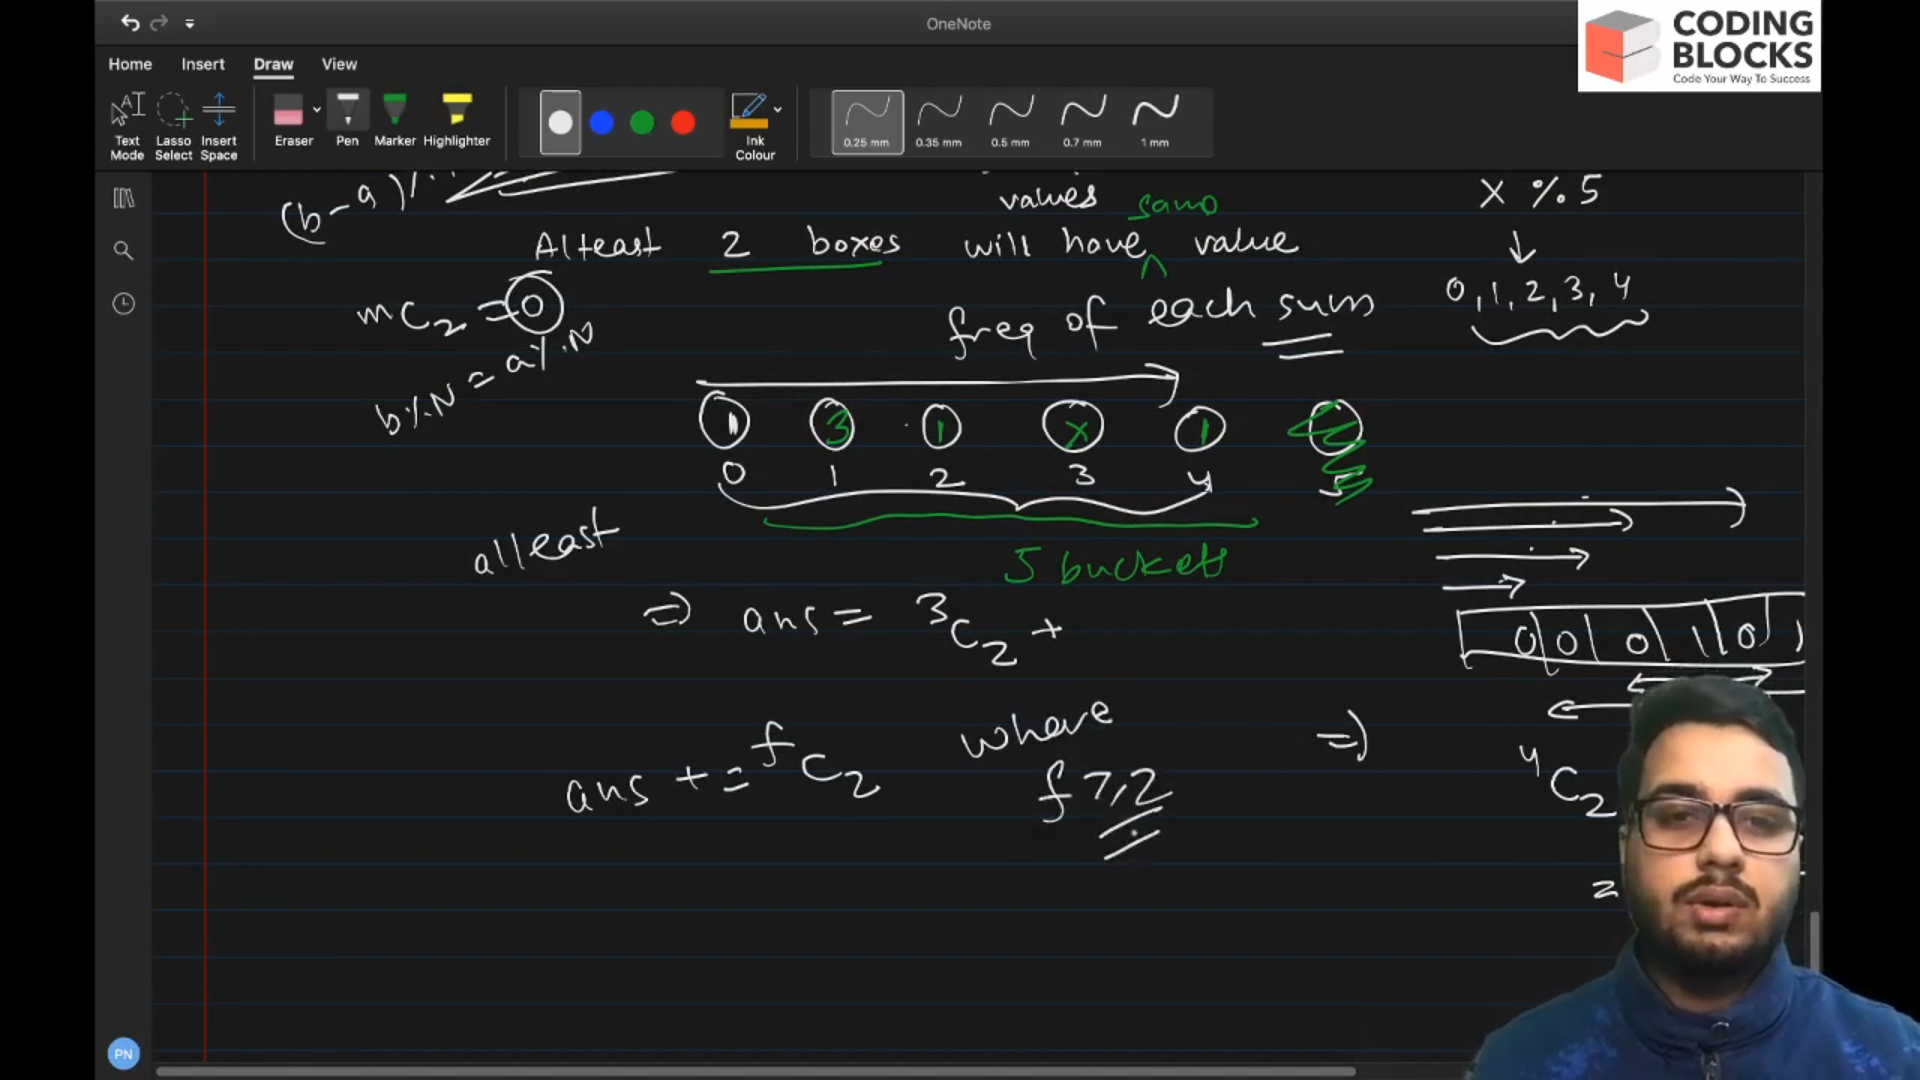 OneNote
CODING
BLOCKS
Code Your Way To Success
Home Insert Draw View
Text Mode
Lasso Select
Insert Space
Eraser
Pen
Marker
Highlighter
Ink Colour
0.25 mm
0.35 mm
0.5 mm
0.7 mm
1 mm
(b-a)%
values same
Alteast 2 boxes will have ^ value
X % 5
↓
0, 1, 2, 3, 4
mC2 = 0
b%N = a%N
freq of each sum
1 3 1 x 1
0 1 2 3 4 5
5 buckets
alleast
=) ans = 3C2 +
0 0 0 1 0 1
ans += fC2 where
f 7,2
=) 4C2
PN